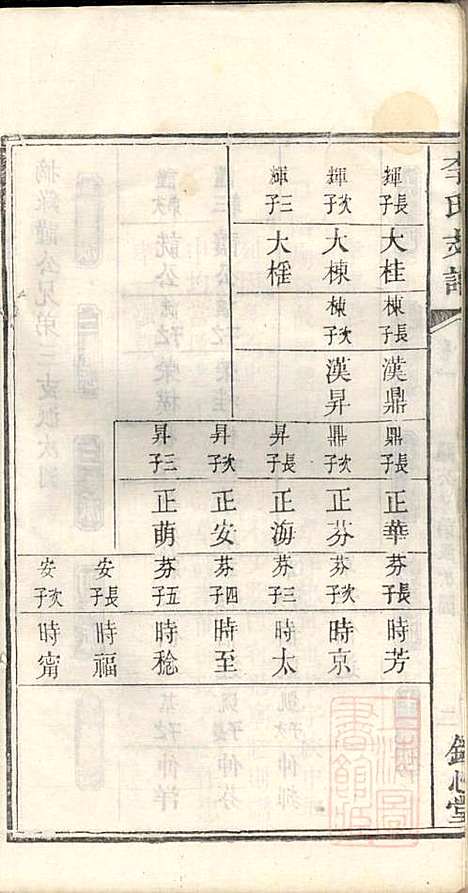 李氏支譜
鏡心堂
輝長子 大桂
輝次子 大棟
輝三子 大槿
棟長子 漢鼎
棟次子 漢昇
鼎長子 正華
鼎次子 正芬
昇長子 正海
昇次子 正安
昇三子 正萌
芬長子 時芳
芬次子 時京
芬三子 時太
芬四子 時至
芬五子 時稔
安長子 時福
安次子 時甯